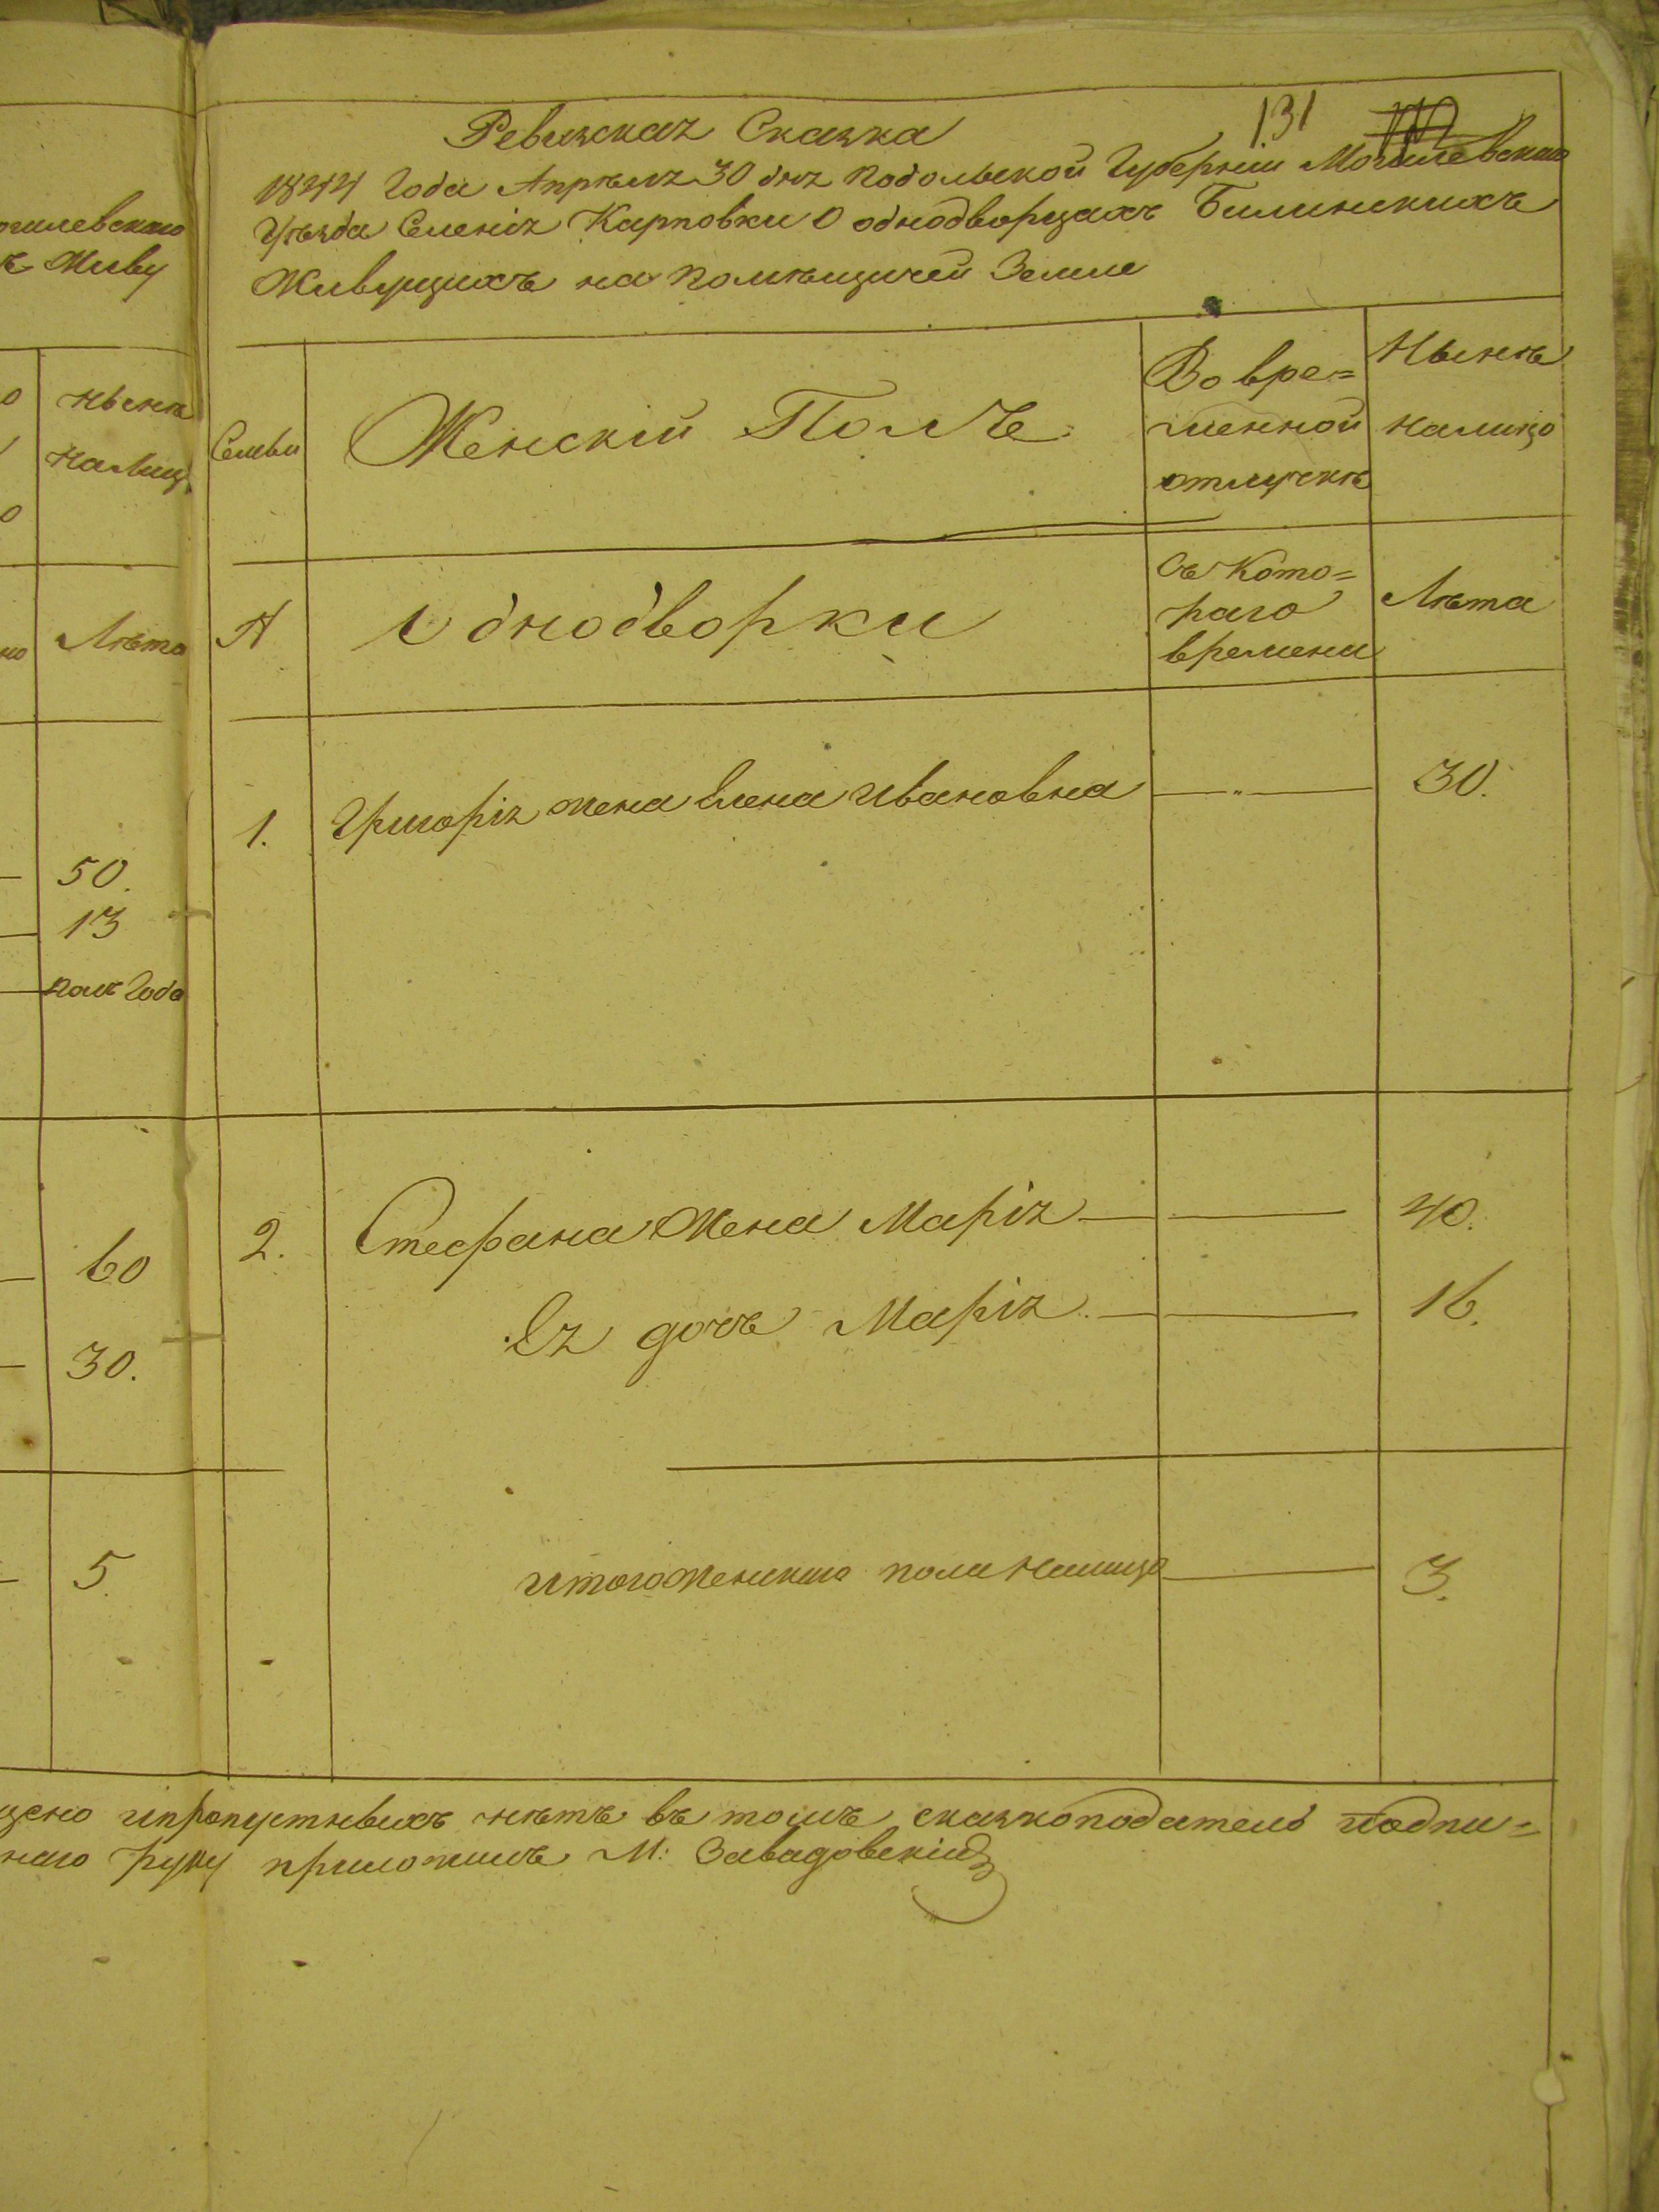 131
Ревизская Сказка
1844 Года Апрѣля 30 дня Подольской Губерніи Могилевскаго
Уѣзда Селенія Карповки О однодворцахъ Билинскихъ
Живущихъ на Помѣщичей Земле
огилевскаго
ъ Живу
Нынѣ
Налицо
Лѣта
50.
13
полъ Года
60
30.
5
Семьи
Женскій Полъ
Во вре=
менной
отлучкѣ
Нынѣ
налицо
Однодворки
Съ Кото=
раго
времени
Лѣта
1. Григорія жена Елена Ивановна — " — 30.
2. Стефана Жена Марія — — 40.
Ея дочь Марія — — 16.
Итого Женскаго пола Налицо — 3.
щено ипропустневихъ нѣтъ въ томъ сказкоподатель подпи=
наго Руку приложилъ М: Завадовскій